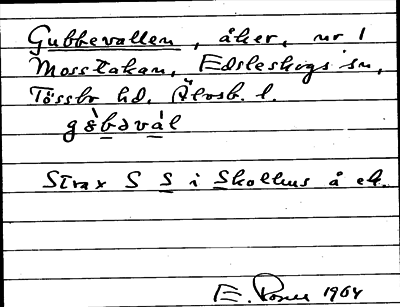 Gubbevallen, åker, nr 1
Mosstakan, Edsleskogs sn,
Tössbo hd, Älvsb. l.
gѐbəvàl
Strax S S i Skolhus å ek.
E. Rosen 1964